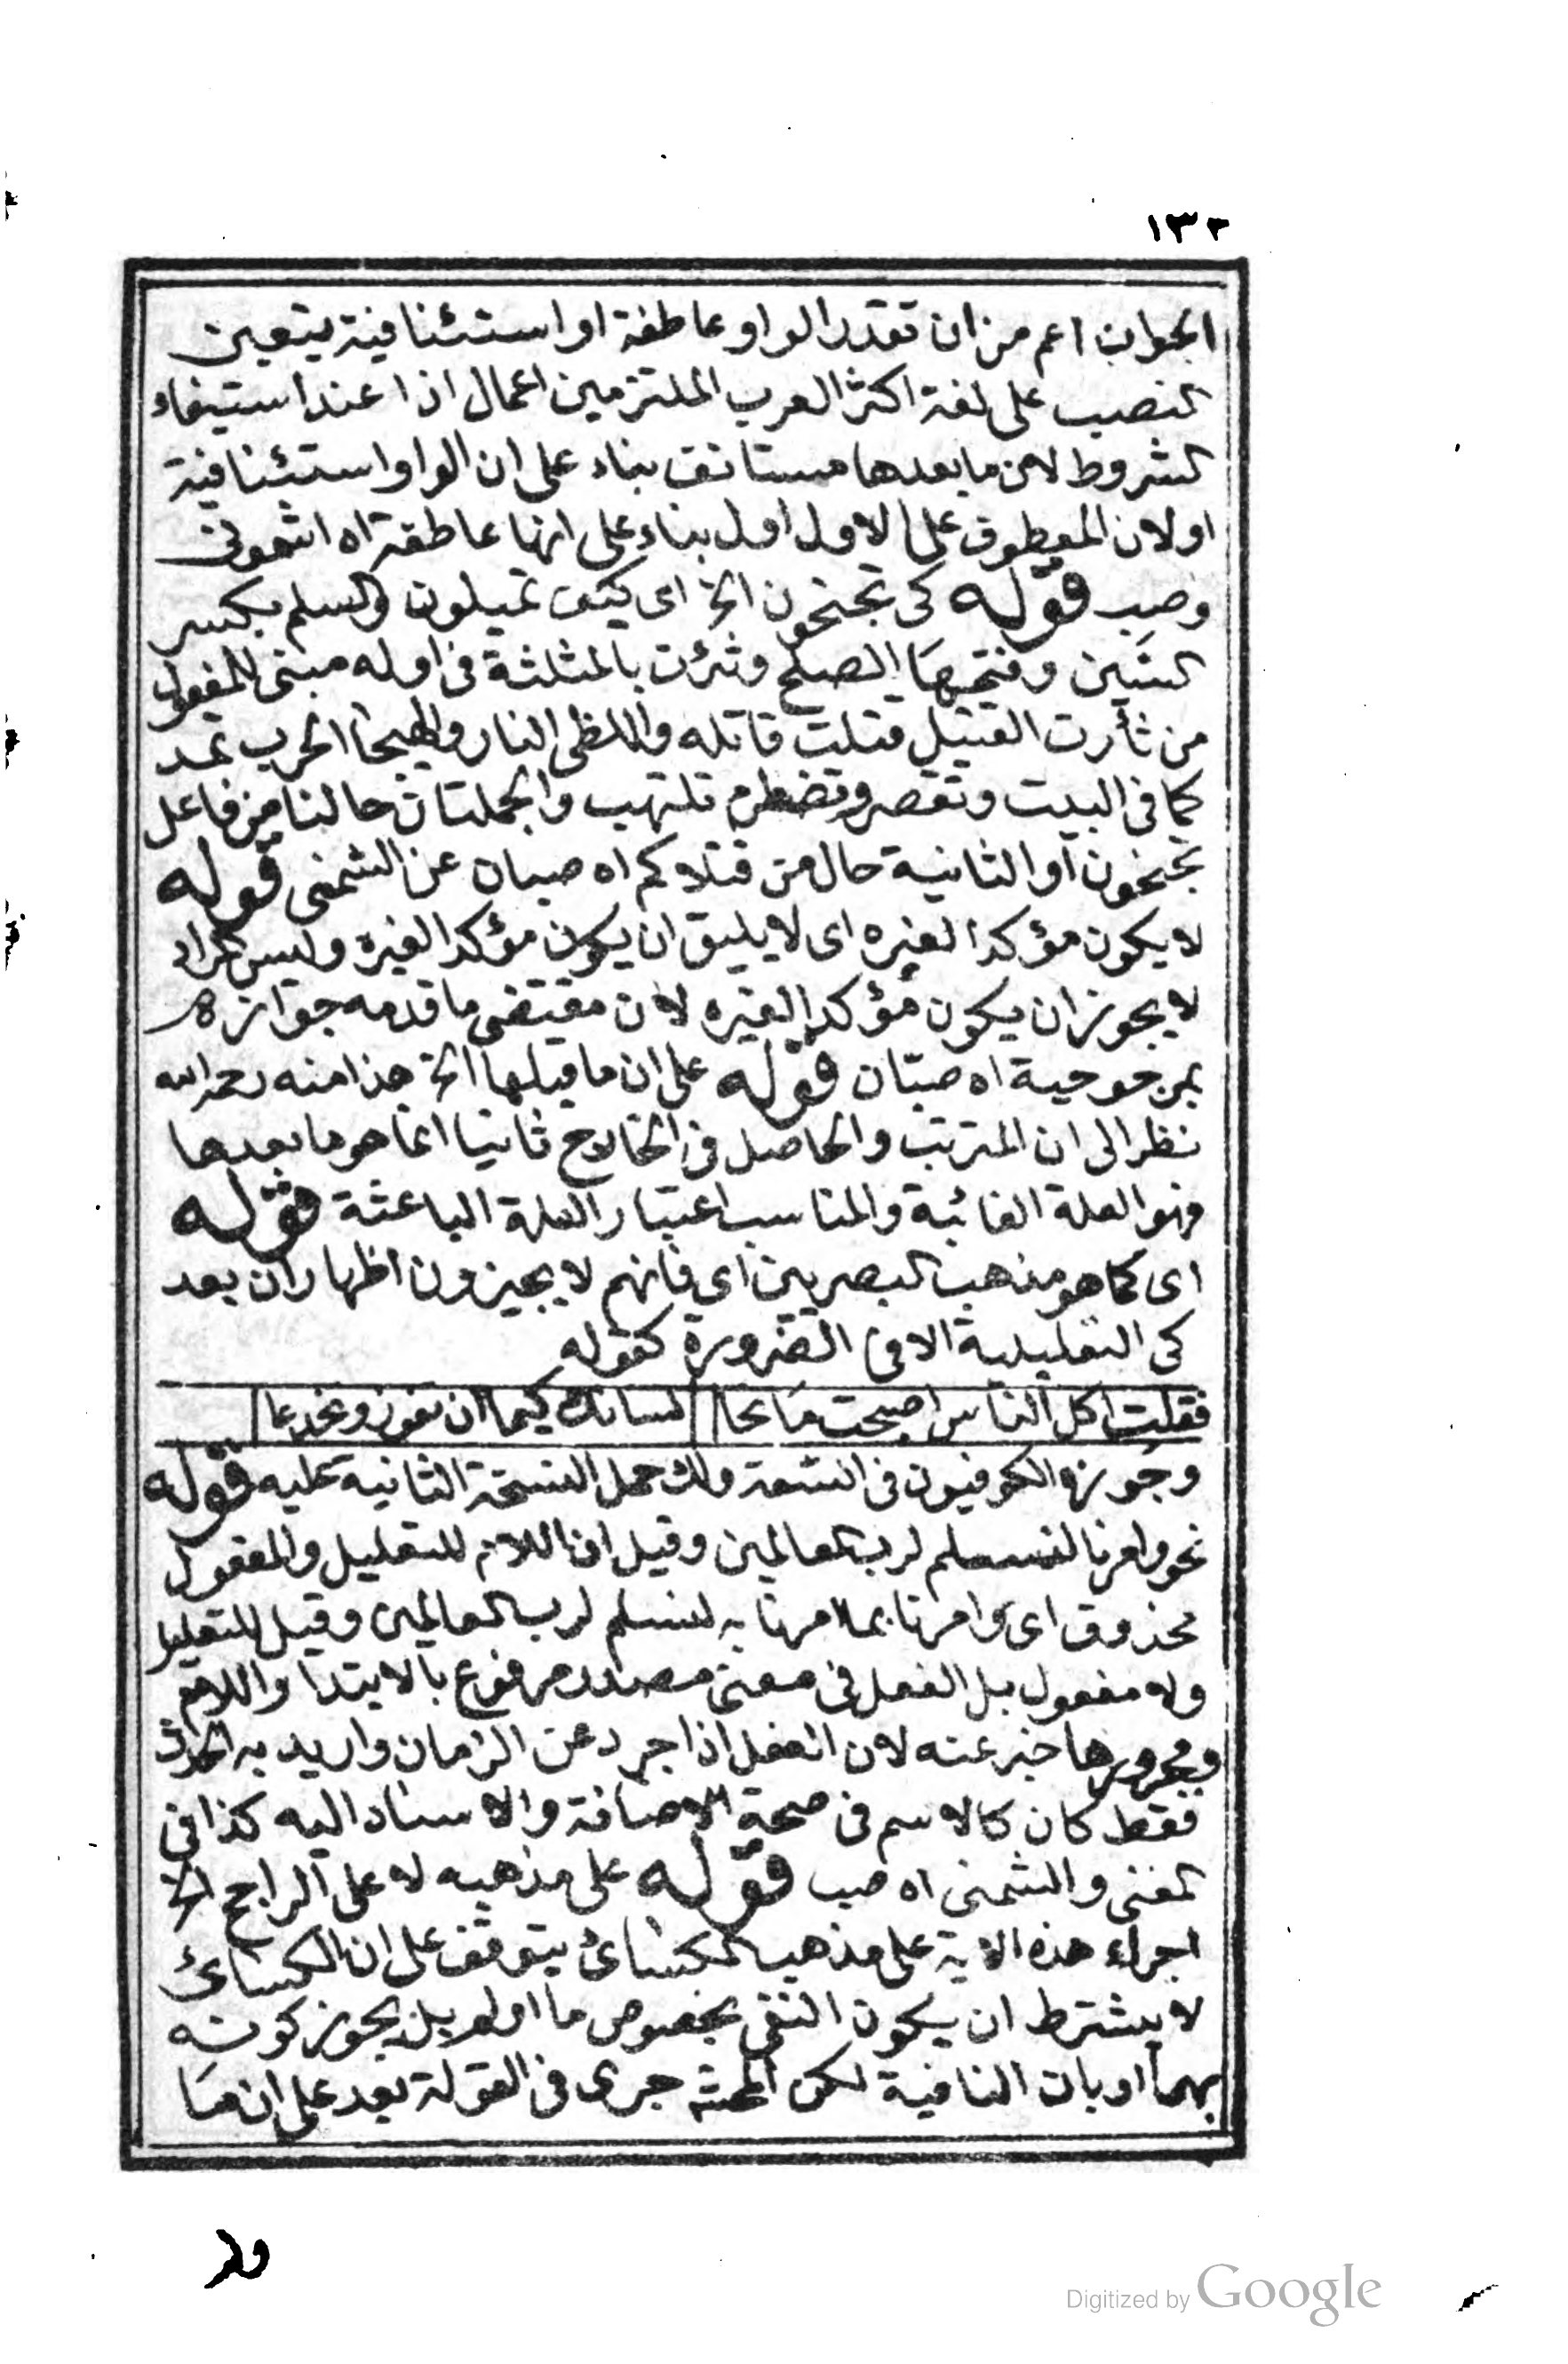 ١٣٢
الجواب اعم من ان تقدر الواو عاطفة او استئنافية يتعين
النصب على لغة اكثر العرب الملتزمين اعمال اذا عند استيفاء
الشروط لان ما بعدها مستانف بناء على ان الواو استئنافية
او لان المعطوف على الاول اول بناء على انها عاطفة اه اشموني
وصب قوله كى تجنحون الخ اى كيف تميلون والسلم بكسر
السين وفتحها الصلح وثئرت بالمثلثة فى اوله مبنى للمفعول
من ثأرت القتيل قتلت قاتله واللظى النار والهيجا الحرب تمد
كما فى البيت وتقصر وتضطرم تلتهب والجملتان حالنا من فاعل
تجنحون او الثانية حال من قتلاكم اه صبان عن الشمنى قوله
لا يكون مؤكدا لغيره اى لا يليق ان يكون مؤكدا لغيره وليس المراد
لا يجوز ان يكون مؤكدا لغيره لان مقتضى ما قدمه جوازه
بمرجوحية اه صبان قوله على ان ما قبلها الخ هذا منه رحمه الله
نظر الى ان المترتب والحاصل فى الخارج ثانيا انما هو ما بعدها
فهو العلة الغائية والمناسب اعتبار العلة الباعثة قوله
اى كما هو مذهب البصريين اي فانهم لا يجيزون اظهار ان بعد
كى التعليلية الا فى الضرورة كقوله
فقلت اكل الناس اصبحت مانحا لسانك كيما ان تغر وتخدعا
وجوزه الكوفيون فى السعة ولك حمل النسخة الثانية عليه قوله
نحو وامرنا لنسلم لرب العالمين وقيل ان اللام للتعليل والمفعول
محذوف اى وامرنا بما امرنا به لنسلم لرب العالمين وقيل للتعليل
ولا مفعول بل الفعل فى معنى مصدر مرفوع بالابتدا واللام
ومجرورها خبر عنه لان الفعل اذا جرد عن الزمان واريد به الحدث
فقط كان كالاسم فى صحة الاضافة والاسناد اليه كذا فى
المغنى والشمنى اه صب قوله على مذهبه لا على الراجح الخ
اجراء هذه الاية على مذهب الكسائى يتوقف على ان الكسائى
لا يشترط ان يكون النفى بخصوص ما او لم بل يجوز كونه
بهما او بان النافية لكن المحشى جرى فى القولة بعد على ان ما
Digitized by Google